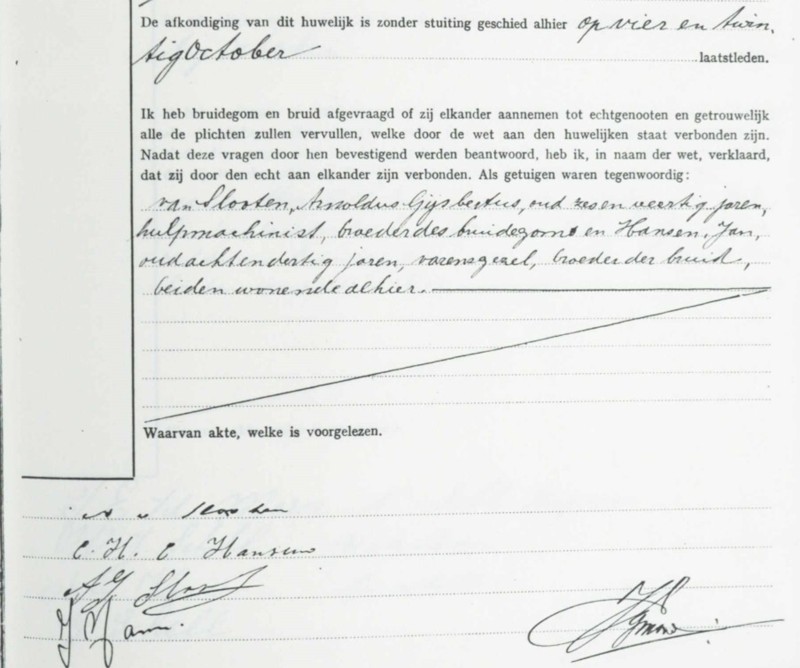 De afkondiging van dit huwelijk is zonder stuiting geschied alhier op vier en twin,
tig October laatstleden.
Ik heb bruidegom en bruid afgevraagd of zij elkander aannemen tot echtgenooten en getrouwelijk
alle de plichten zullen vervullen, welke door de wet aan den huwelijken staat verbonden zijn.
Nadat deze vragen door hen bevestigend werden beantwoord, heb ik, in naam der wet, verklaard,
dat zij door den echt aan elkander zijn verbonden. Als getuigen waren tegenwoordig:
van Slooten, Arnoldus Gijsbertus, oud zes en veertig jaren,
hulpmachinist, broeder des bruidegoms en Hansen, Jan,
oud acht en dertig jaren, varensgezel, broeder der bruid,
beiden wonende alhier.
Waarvan akte, welke is voorgelezen.
C. H. C Hansen